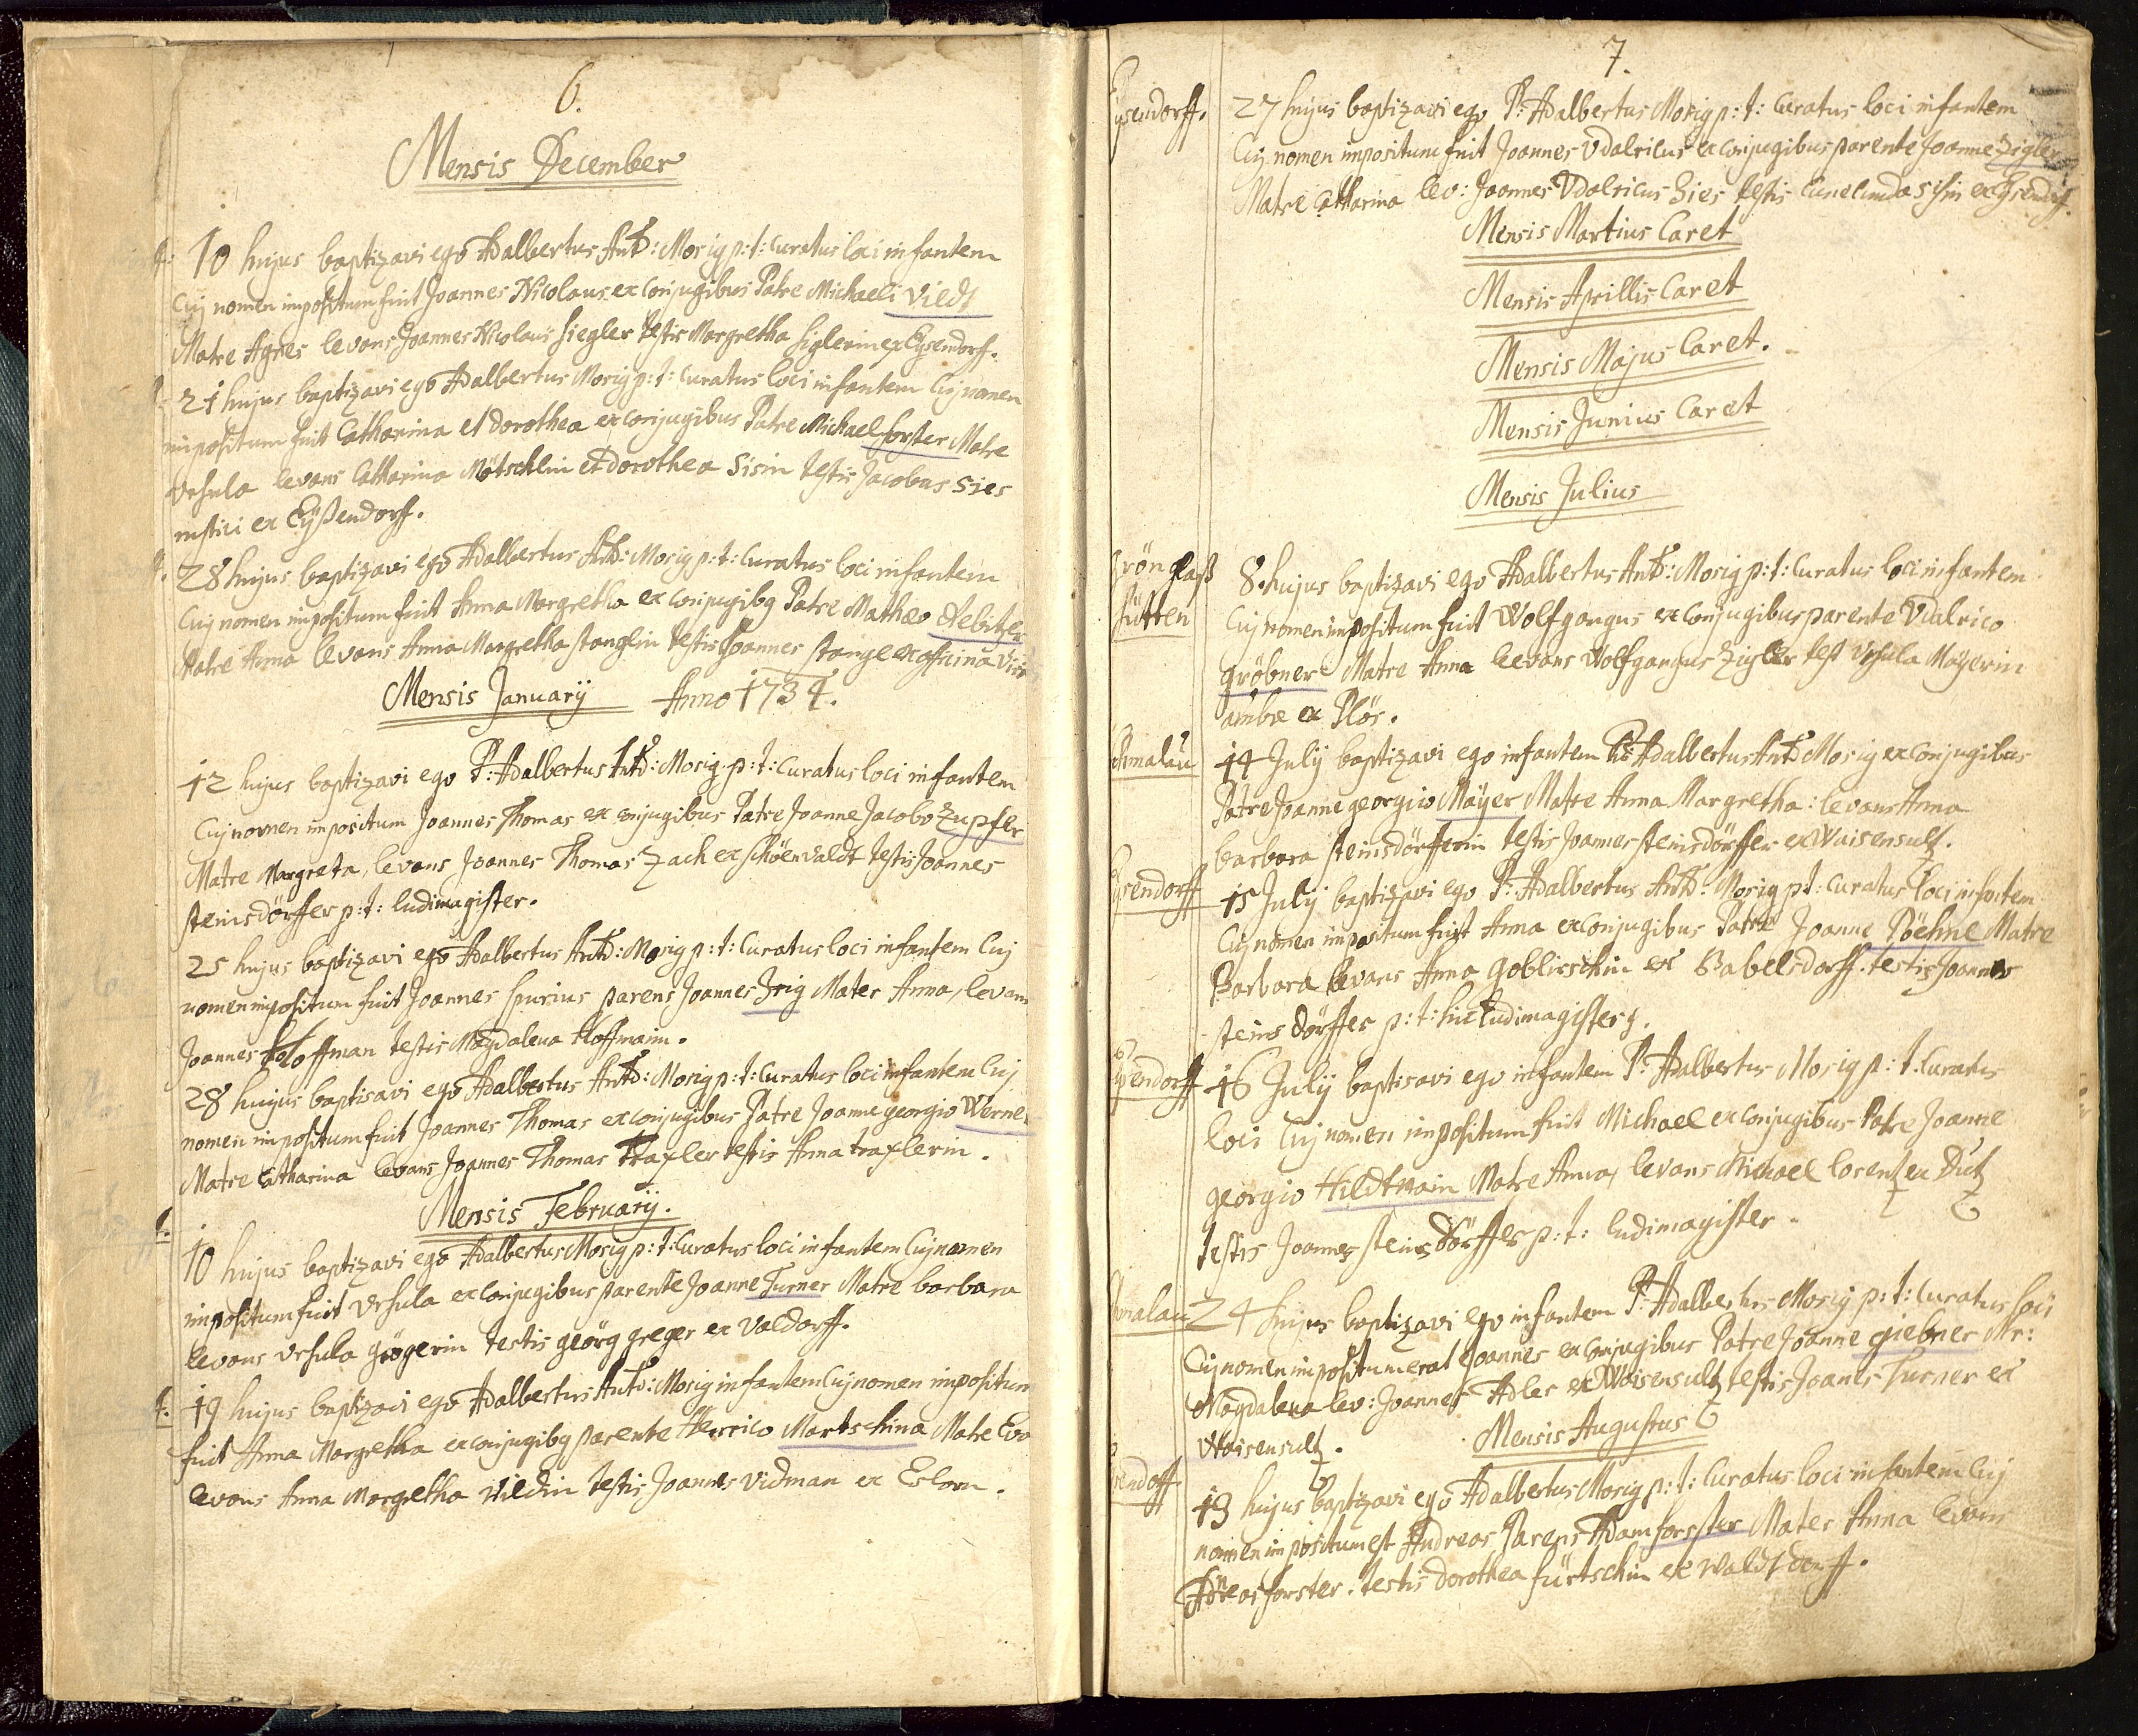 6.
Mensis December
10 hujus baptizavi ego Adalbertus Antō: Morig p: t: Curatus loci infantem
Cuj nomen impositum fuit Joannes Nicolaus ex Conjugibus Patre Michaeli Vildt
Matre Agnes levans Joannes Nicolaus Siegler testis Margretha Siglerin ex Eysendorff.
21 hujus baptizavi ego Adalbertus Morig p: t: Curatus loci infantem Cuj nomen
impositum fuit Catharina et dorothea ex conjugibus Patre Michael forster Matre
Vrsula levans Catharina Mötschlin et dorothea Sisin testis Jacobus Sies
rustici ex Eÿßendorf.
28 hujus baptizavi ego Adalbertus Antō: Morig p: t: Curatus loci infantem
Cuj nomen impositum fuit Anna Margretha ex conjugibg Patre Matheo
Matre Anna levans Anna Margretha stanglin testis Joannes stange ex officina
Mensis Januarÿ Anno 1734.
12 hujus baptizavi ego P: Adalbertus Antō: Morig p: t: Curatus loci infantem
Cuj nomen impositum Joannes Thomas ex conjugibus Patre Joanne Jacobo Zupfer
Matre Margreta, levans Joannes Thomas Zach ex schöenvaldt testis Joannes
steinsdörffer p: t: ludimagister.
25 hujus baptizavi ego Adalbertus Antō: Morig p: t: Curatus loci infantem Cuj
nomen impositum fuit Joannes spurius parens Joannes Irig Mater Anna, levans
Joannes Hoffman testis Magdalena Hoffmanin.
28 hujus baptisavi ego Adalbertus Antō: Morig p: t: Curatus loci infantem Cuj
nomen impositum fuit Joannes Thomas ex conjugibus Patre Joanne georgio Werner
Matre Catharina levans Joannes Thomas Traxler testis Anna traxlerin.
Mensis Februarÿ.
10 hujus baptizavi ego Adalbertus Morig p: t: Curatus loci infantem Cuj nomen
impositum fuit Vrsula ex conjugibus parente Joanne Turner Matre barbara
levans Vrsula grögerin testis geörg greger ex Valdorff.
19 hujus baptizavi ego Adalbertus Antō: Morig infantem Cuj nomen impositum
fuit Anna Margretha ex conjugibg parente Henrico Martschina Matre Eva
levans Anna Margretha Vildin testis Joannes Vidman ex Eslarn.
7.
Eysendorff. 27 hujus baptizavi ego P: Adalbertus Morig p: t: Curatus loci infantem
Cuj nomen impositum fuit Joannes Vdalricus ex conjugibus parente Joanne Zigler
Matre Catharina lev: Joannes Vdalricus Sies testis Cunecunda Sisin ex Eysendorf.
Mensis Martius Caret
Mensis Aprillis Caret
Mensis Majus Caret.
Mensis Junius Caret
Mensis Julius
8. hujus baptizavi ego Adalbertus Antō: Morig p: t: Curatus loci infantem
hütten Cuj nomen impositum fuit Wolfgangus ex Conjugibus parente Vdalrico
gröbner Matre Anna levans Wolfgangus Zigler test Vrsula Mäÿerin
ambæ ex Plös.
14 Julÿ baptizavi ego infantem P: Adalbertus Antō Morig ex Conjugibus
Patre Joanne georgio Maÿer Matre Anna Margretha: levans Anna
barbara steinsdörfferin testis Joannes steinsdörffer ex Waisensultz.
Eysendorff 15 Julÿ baptizavi ego P: Adalbertus Antō: Morig p t: Curatus loci infantem
Cuj nomen impositum fuit Anna ex conjugibus Patre Joanne Pöehnl Matre
Barbara levans Anna goblirschin ex Babelsdorff. testis Joannes
steinsdörffer p: t: hic ludimagisterg.
Eysendorff 16 Julÿ baptisavi ego infantem P: Adalbertus Morig p: t. Curatus
loci Cuj nomen impositum fuit Michael ex conjugibus Patre Joanne
georgio Hildtwein Matre Anna, levans Michael lorentz ex Dutz
testis Joannes steinsdörffer p: t: ludimagister.
24 hujus baptizavi ego infantem P: Adalbertus Morig p: t: Curatus loci
Cuj nomen impositum erat Joannes ex conjugibus Patre Joanne giebner Mr:
Magdalena lev: Joannes Adler ex Waisensultz testis Joanes Turner ex
Waisensultz.
Mensis Augustus
19 hujus baptizavi ego Adalbertus Morig p: t: Curatus loci infantem Cuj
nomen impositum est Andreas Parens Adam forster Mater Anna levans
Andreas forster. testis dorothea fürtschin ex Waldtdorff.